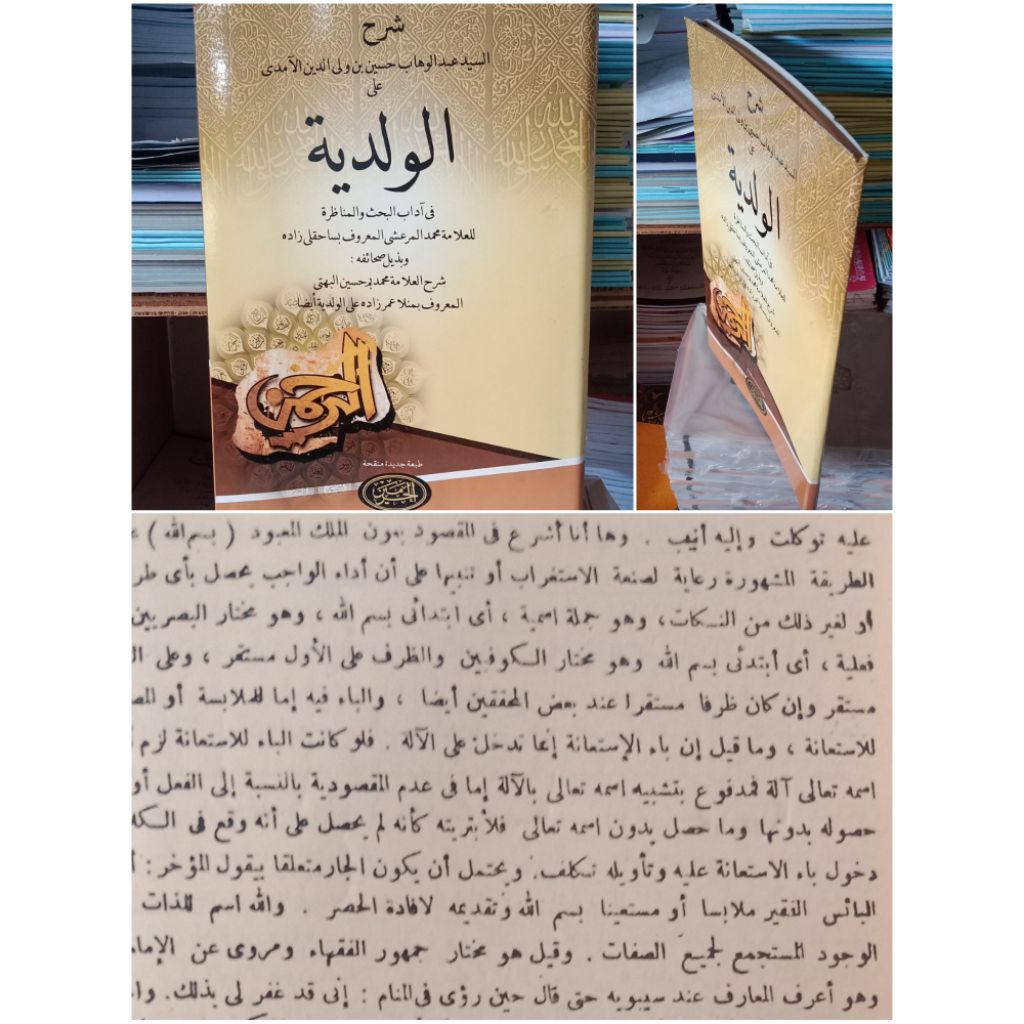 شرح
السيد عبد الوهاب حسين بن ولى الدين الآمدى
على
الولدية
فى آداب البحث والمناظرة
للعلامة محمد المرعشى المعروف بساجقلى زاده
وبذيل صحائفه :
شرح العلامة محمد بن حسين البهتى
المعروف بمنلا عمر زاده على الولدية أيضا
الرحمن
طبعة جديدة منقحة
شرح
السيد عبد الوهاب حسين بن ولى الدين الآمدى
على
الولدية
فى آداب البحث والمناظرة
عليه توكلت وإليه أنيب . وها أنا أشرع فى المقصود بعون الملك المعبود ( بسم الله )
الطريقة المشهورة رعاية لصنعة الاستغراب أو تنبيها على أن أداء الواجب يحصل بأى
أو لغير ذلك من النكات، وهو جملة اسمية ، أى ابتدائى بسم الله ، وهو مختار البصريين
فعلية ، أى أبتدئى بسم الله وهو مختار الكوفيين والظرف على الأول مستقر ، وعلى
مستقر وإن كان ظرفا مستقرا عند بعض المحققين أيضا ، والباء فيه إما للملابسة أو
للاستعانة ، وما قيل إن باء الإستعانة إنما تدخل على الآلة . فلو كانت الباء للاستعانة لزم
اسمه تعالى آلة فمدفوع بتشبيه اسمه تعالى بالآلة إما فى عدم المقصودية بالنسبة إلى الفعل أو
حصوله بدونها وما حصل بدون اسمه تعالى فلأبتريته كأنه لم يحصل على أنه وقع فى
دخول باء الاستعانة عليه وتأويله تكلف. ويحتمل أن يكون الجار متعلقا بيقول المؤخر :
البائس الفقير ملابسا أو مستعينا بسم الله وتقديمه لافادة الحصر . والله اسم للذات
الوجود المستجمع لجميع الصفات . وقيل هو مختار جمهور الفقهاء ومروى عن
وهو أعرف المعارف عند سيبويه حتى قال حين رؤى فى المنام : إنى قد غفر لى بذلك.